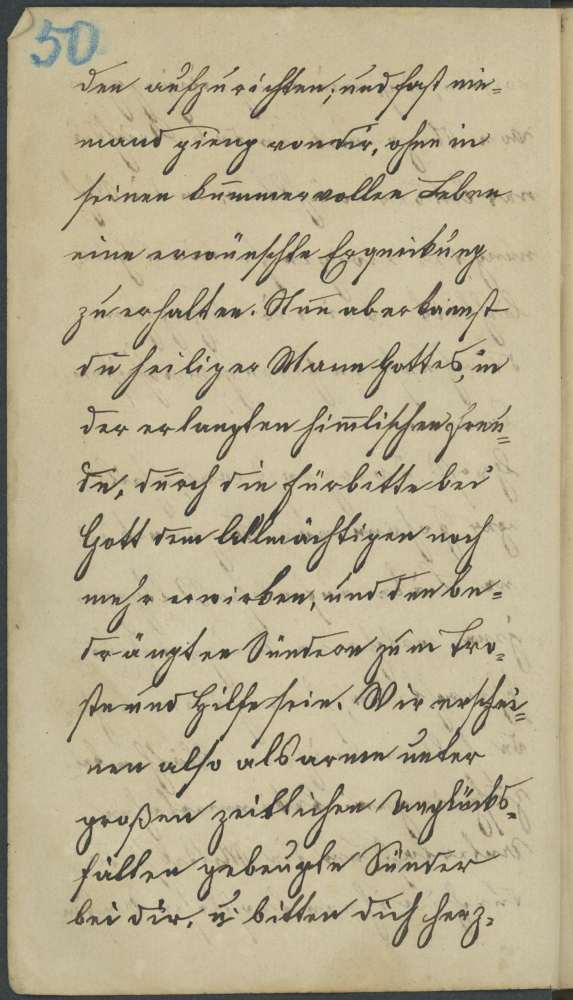 50
den aufzurichten; und fast nie=
mand gieng von dir, ohne in
seinen kummervollen Leben
eine erwünschte Erquickung
zu erhalten. Nun aber kannst
du heiliger Mann Gottes, in
der erlangten himlischen Freu=
de, durch die Fürbitte bei
Gott dem Allmächtigen noch
mehr erwirken, und den be=
drängten Sündern zum Tro=
ste und Hilfe sein. Wir erschei=
nen also als arme unter
großen zeitlichen Unglücks=
fällen gebeugte Sünder
bei dir, u: bitten dich herz=